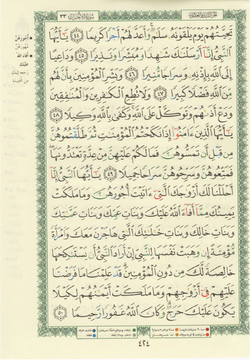 تَحِيَّتُهُمْ يَوْمَ يَلْقَوْنَهُ سَلَامٌ وَأَعَدَّ لَهُمْ أَجْرًا كَرِيمًا ٤٤ يَا أَيُّهَا
النَّبِيُّ إِنَّا أَرْسَلْنَاكَ شَاهِدًا وَمُبَشِّرًا وَنَذِيرًا ٤٥ وَدَاعِيًا
إِلَى اللَّهِ بِإِذْنِهِ وَسِرَاجًا مُنِيرًا ٤٦ وَبَشِّرِ الْمُؤْمِنِينَ بِأَنَّ لَهُمْ
مِنَ اللَّهِ فَضْلًا كَبِيرًا ٤٧ وَلَا تُطِعِ الْكَافِرِينَ وَالْمُنَافِقِينَ
وَدَعْ أَذَاهُمْ وَتَوَكَّلْ عَلَى اللَّهِ وَكَفَى بِاللَّهِ وَكِيلًا ٤٨
يَا أَيُّهَا الَّذِينَ آمَنُوا إِذَا نَكَحْتُمُ الْمُؤْمِنَاتِ ثُمَّ طَلَّقْتُمُوهُنَّ
مِنْ قَبْلِ أَنْ تَمَسُّوهُنَّ فَمَا لَكُمْ عَلَيْهِنَّ مِنْ عِدَّةٍ تَعْتَدُّونَهَا
فَمَتِّعُوهُنَّ وَسَرِّحُوهُنَّ سَرَاحًا جَمِيلًا ٤٩ يَا أَيُّهَا النَّبِيُّ إِنَّا
أَحْلَلْنَا لَكَ أَزْوَاجَكَ اللَّاتِي آتَيْتَ أُجُورَهُنَّ وَمَا مَلَكَتْ
يَمِينُكَ مِمَّا أَفَاءَ اللَّهُ عَلَيْكَ وَبَنَاتِ عَمِّكَ وَبَنَاتِ عَمَّاتِكَ
وَبَنَاتِ خَالِكَ وَبَنَاتِ خَالَاتِكَ اللَّاتِي هَاجَرْنَ مَعَكَ وَامْرَأَةً
مُؤْمِنَةً إِنْ وَهَبَتْ نَفْسَهَا لِلنَّبِيِّ إِنْ أَرَادَ النَّبِيُّ أَنْ يَسْتَنْكِحَهَا
خَالِصَةً لَكَ مِنْ دُونِ الْمُؤْمِنِينَ قَدْ عَلِمْنَا مَا فَرَضْنَا
عَلَيْهِمْ فِي أَزْوَاجِهِمْ وَمَا مَلَكَتْ أَيْمَانُهُمْ لِكَيْلَا
يَكُونَ عَلَيْكَ حَرَجٌ وَكَانَ اللَّهُ غَفُورًا رَحِيمًا ٥٠
٤٢٤